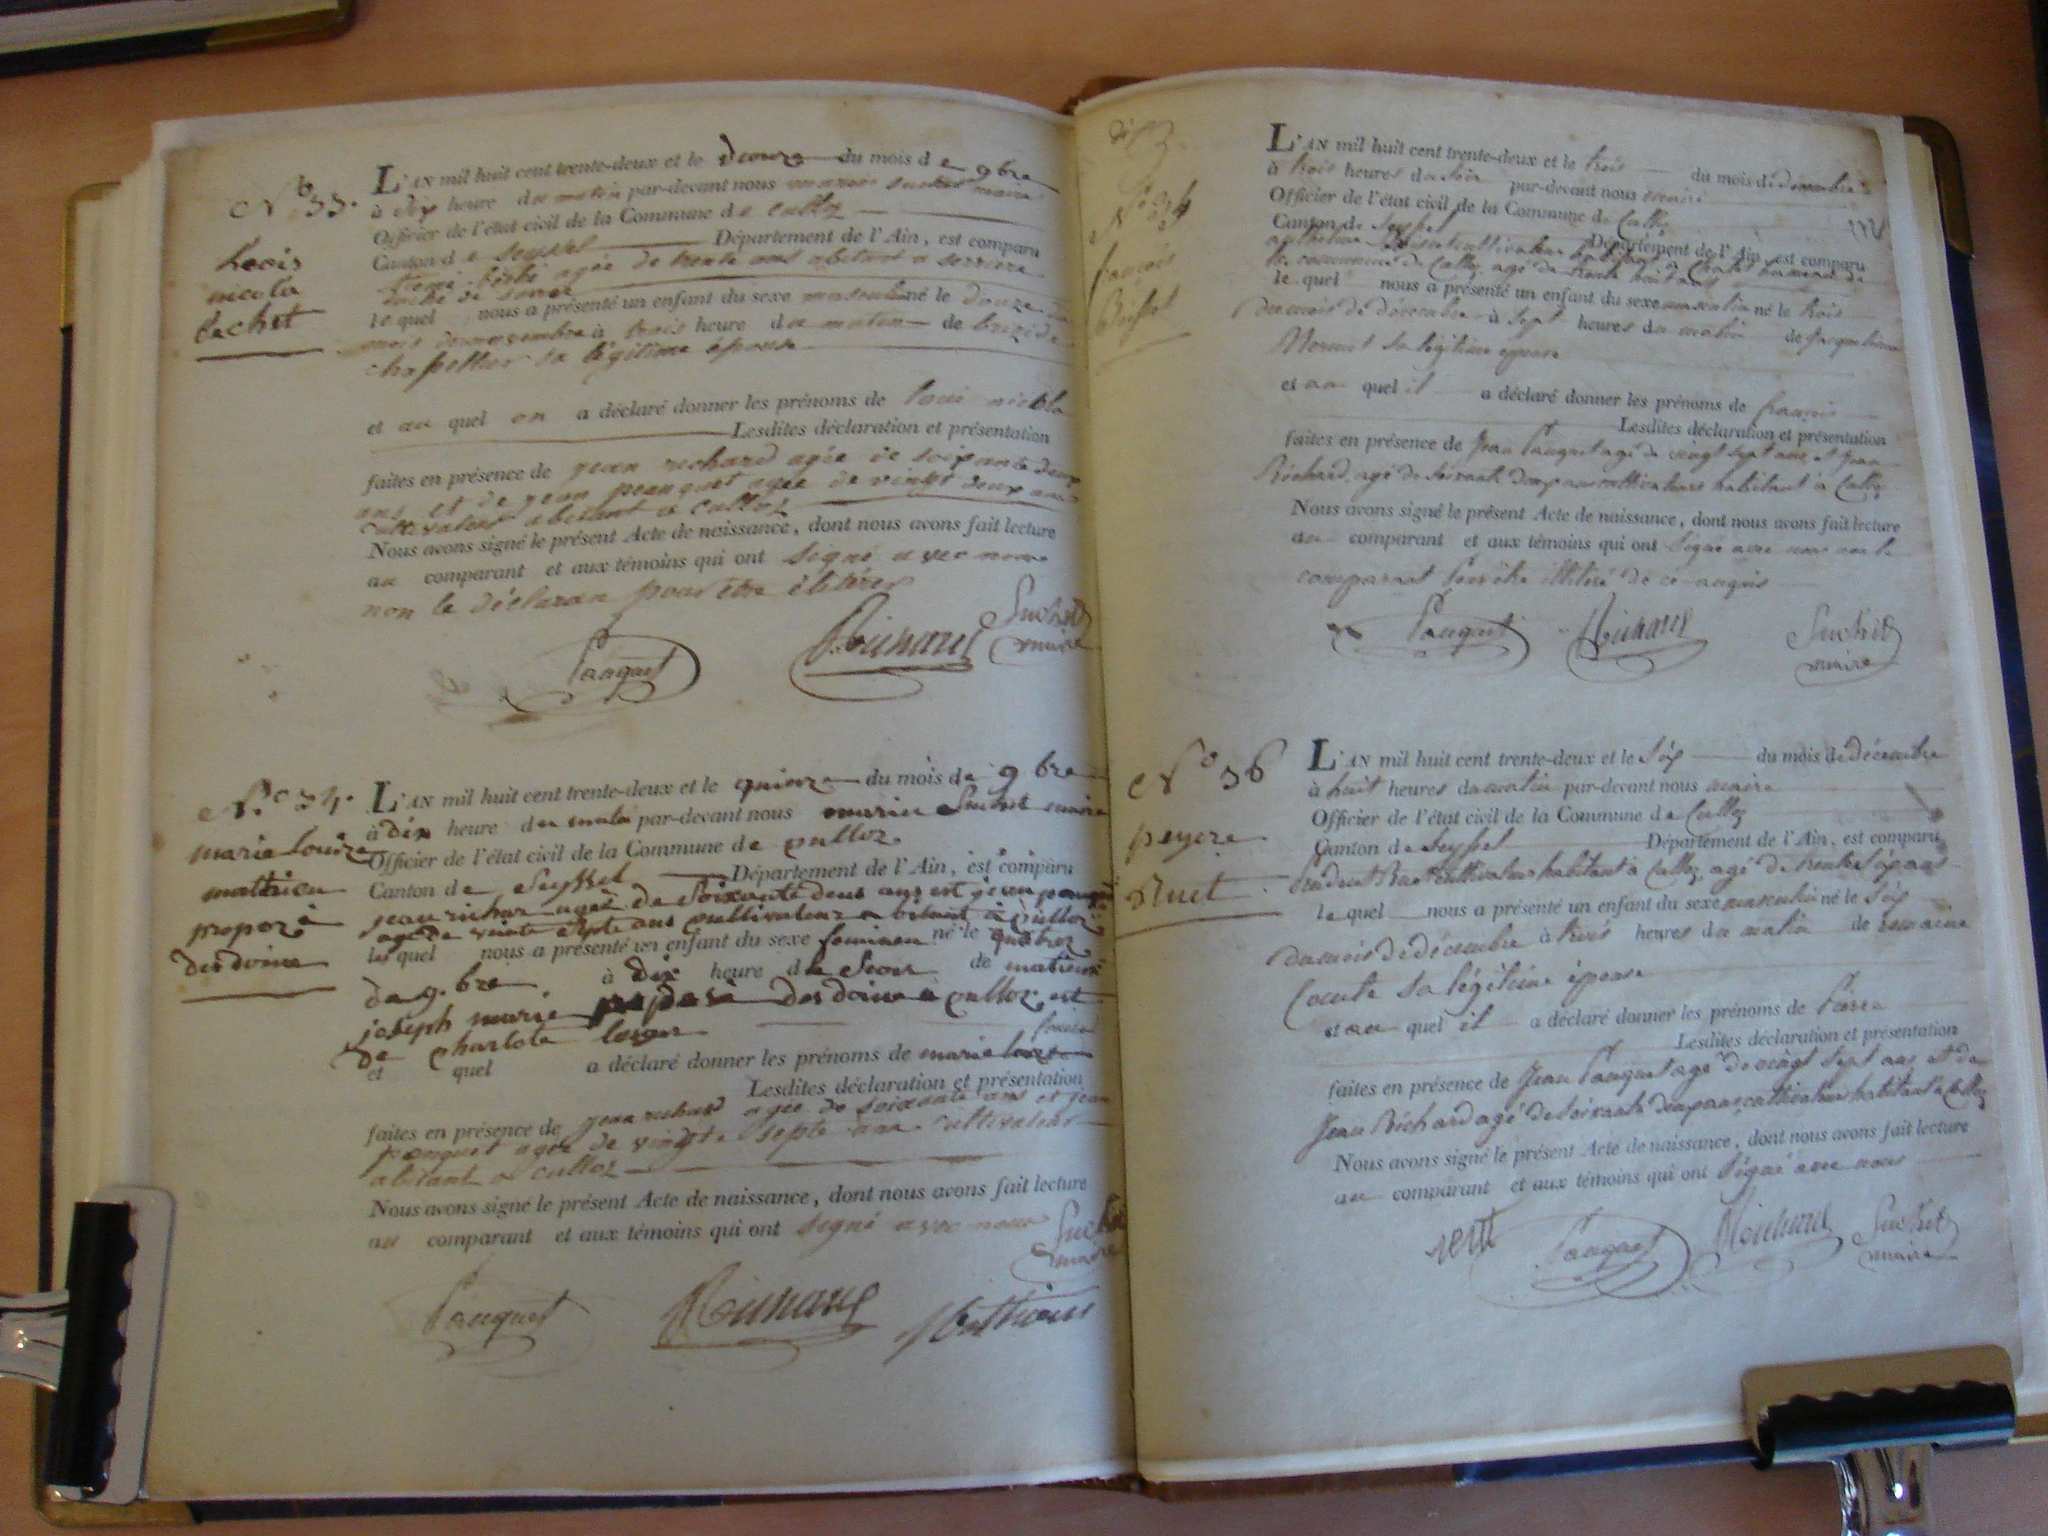 N.º 33.
Loois
nicola
bechet
L'AN mil huit cent trente-deux et le douze du mois de 9bre
à six heure du matin par-devant nous marie suchet maire
Officier de l'état civil de la Commune de culloz
Canton de Seyssel Département de l'Ain, est comparu
agée de trente ans abitant a serriere
duché de savoie
le quel nous a présenté un enfant du sexe masculin né le douze du
mois de novembre à trois heure du matin de brizide
chapellier sa légitime épouse
et au quel on a déclaré donner les prénoms de loui nicola
Lesdites déclaration et présentation
faites en présence de jean richard agée de soixante deux
ans et de jean panquet agée de vingt deux ans
cultivateur abitant a culloz
Nous avons signé le présent Acte de naissance, dont nous avons fait lecture
au comparant et aux témoins qui ont signé avec nous
non le déclaran pour être élitéré
Panquet Richard Suchet
maire
N.º 34.
marie louize
mathieu
proporé
desdoine
L'AN mil huit cent trente-deux et le quinze du mois de 9bre
à dix heure du matin par-devant nous marie Suchet maire
Officier de l'état civil de la Commune de culloz
Canton de Seyssel Département de l'Ain, est comparu
jean richar agée de Soixante deux ans est jean panquet
age de vinte septe ans cultivateur abitant à culloz
les quel nous a présenté un enfant du sexe feminen né le quatorz
de 9.bre à dix heure du Seoir de matieux
joseph marie desdoine a culloz est
de charlote
et quel a déclaré donner les prénoms de marie louize
Lesdites déclaration et présentation
faites en présence de jean richard agée de soixante ans et jean
panquet agée de vingte septe ans cultivateur
abitant a culloz
Nous avons signé le présent Acte de naissance, dont nous avons fait lecture
au comparant et aux témoins qui ont signé avec nous
Suchet
maire
Panquet Richard Mathieux
N.º
françois
L'AN mil huit cent trente-deux et le trois du mois de décembre
à trois heures du soir par-devant nous maire
Officier de l'état civil de la Commune de Culloz
Canton de Seyssel Département de l'Ain, est comparu
cultivateur habitant à Chatel hameau de
la commune de Culloz agé de trente huit ans
le quel nous a présenté un enfant du sexe masculin né le trois
du mois de décembre à sept heures du matin de Jacqueline
Mermet sa légitime épouse
et au quel il a déclaré donner les prénoms de françois
Lesdites déclaration et présentation
faites en présence de Jean Panquet agé de vingt sept ans et Jean
Richard, agé de soixante deux ans cultivateurs habitant à Culloz
Nous avons signé le présent Acte de naissance, dont nous avons fait lecture
au comparant et aux témoins qui ont signé avec nous non le
comparant pour être illitéré de ce anquis
Panquet Richard Suchet
maire
N.º 36
peyere
Ruet
L'AN mil huit cent trente-deux et le Six du mois de décembre
à huit heures du matin par-devant nous maire
Officier de l'état civil de la Commune de Culloz
Canton de Seyssel Département de l'Ain, est comparu
Ruet cultivateur habitant à Culloz agé de trente six ans
le quel nous a présenté un enfant du sexe masculin né le Six
du mois de décembre à trois heures du matin de romaine
sa légitime épouse
et au quel il a déclaré donner les prénoms de Pierre
Lesdites déclaration et présentation
faites en présence de Jean Panquet agé de vingt sept ans, et de
Jean Richard agé de soixante deux ans, cultivateurs habitant à Culloz
Nous avons signé le présent Acte de naissance, dont nous avons fait lecture
au comparant et aux témoins qui ont signé avec nous
Panquet Richard Suchet
maire